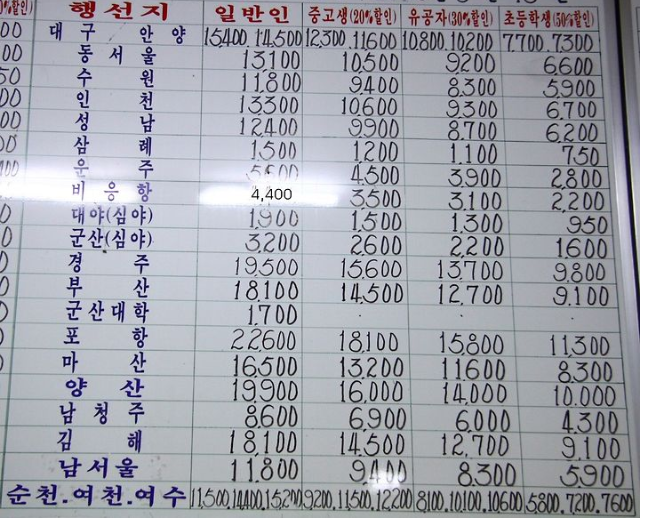 %할인) 행선지 일반인 중고생(20%할인) 유공자(30%할인) 초등학생(50%할인)
00 대구 안양 15400.14,500 12,300.11600 10,800.10,200 7,700.7,300
00 동서울 13,100 10,500 9,200 6,600
50 수원 11,800 9,400 8,300 5,900
00 인천 13,300 10,600 9,300 6,700
00 성남 12,400 9,900 8,700 6,200
00 삼례 1,500 1,200 1,100 750
운주 4,500 3,900 2,800
비응항 4,400 3,500 3,100 2,200
0 대야(심야) 1,900 1,500 1,300 950
0 군산(심야) 3,200 2,600 2,200 1,600
경주 19,500 15,600 13,700 9,800
부산 18,100 14,500 12,700 9,100
군산대학 1,700
포항 22,600 18,100 15,800 11,300
마산 16,500 13,200 11,600 8,300
양산 19,900 16,000 14,000 10,000
남청주 8,600 6,900 6,000 4,300
김해 18,100 14,500 12,700 9,100
남서울 11,800 9,400 8,300 5,900
순천.여천.여수 11,500.14,400.15,200 9,200.11,500.12,200 8,100.10,100.10,600 5,800.7,200.7,600